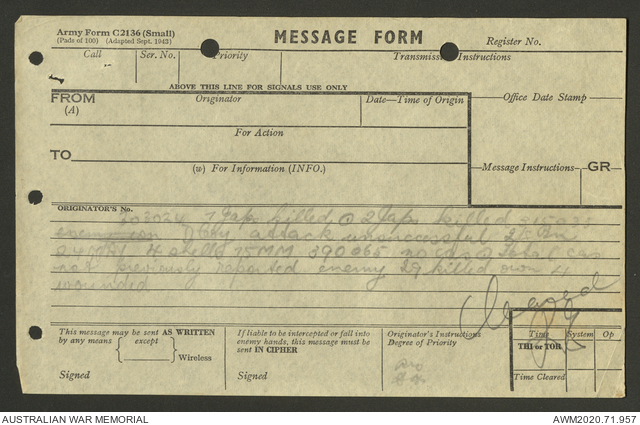 Army Form C2136 (Small)
(Pads of 100) (Adapted Sept. 1942)
MESSAGE FORM
Register No.
Call
Ser. No.
Priority
Transmission Instructions
ABOVE THIS LINE FOR SIGNALS USE ONLY
FROM
(A)
Originator
Date—Time of Origin
Office Date Stamp
For Action
TO
(w) For Information (INFO.)
Message Instructions
GR
ORIGINATOR'S No.
203024 7 Japs killed 2 Japs killed
attack unsuccessful
4 shells 75MM 390065 no cas total cas
not previously reported enemy 29 killed own 4
wounded
Cleared
This message may be sent AS WRITTEN
by any means
except
Wireless
Signed
If liable to be intercepted or fall into
enemy hands, this message must be
sent IN CIPHER
Signed
Originator's Instructions
Degree of Priority
Time
System
Op
THI or TOR
Time Cleared
AUSTRALIAN WAR MEMORIAL
AWM2020.71.957